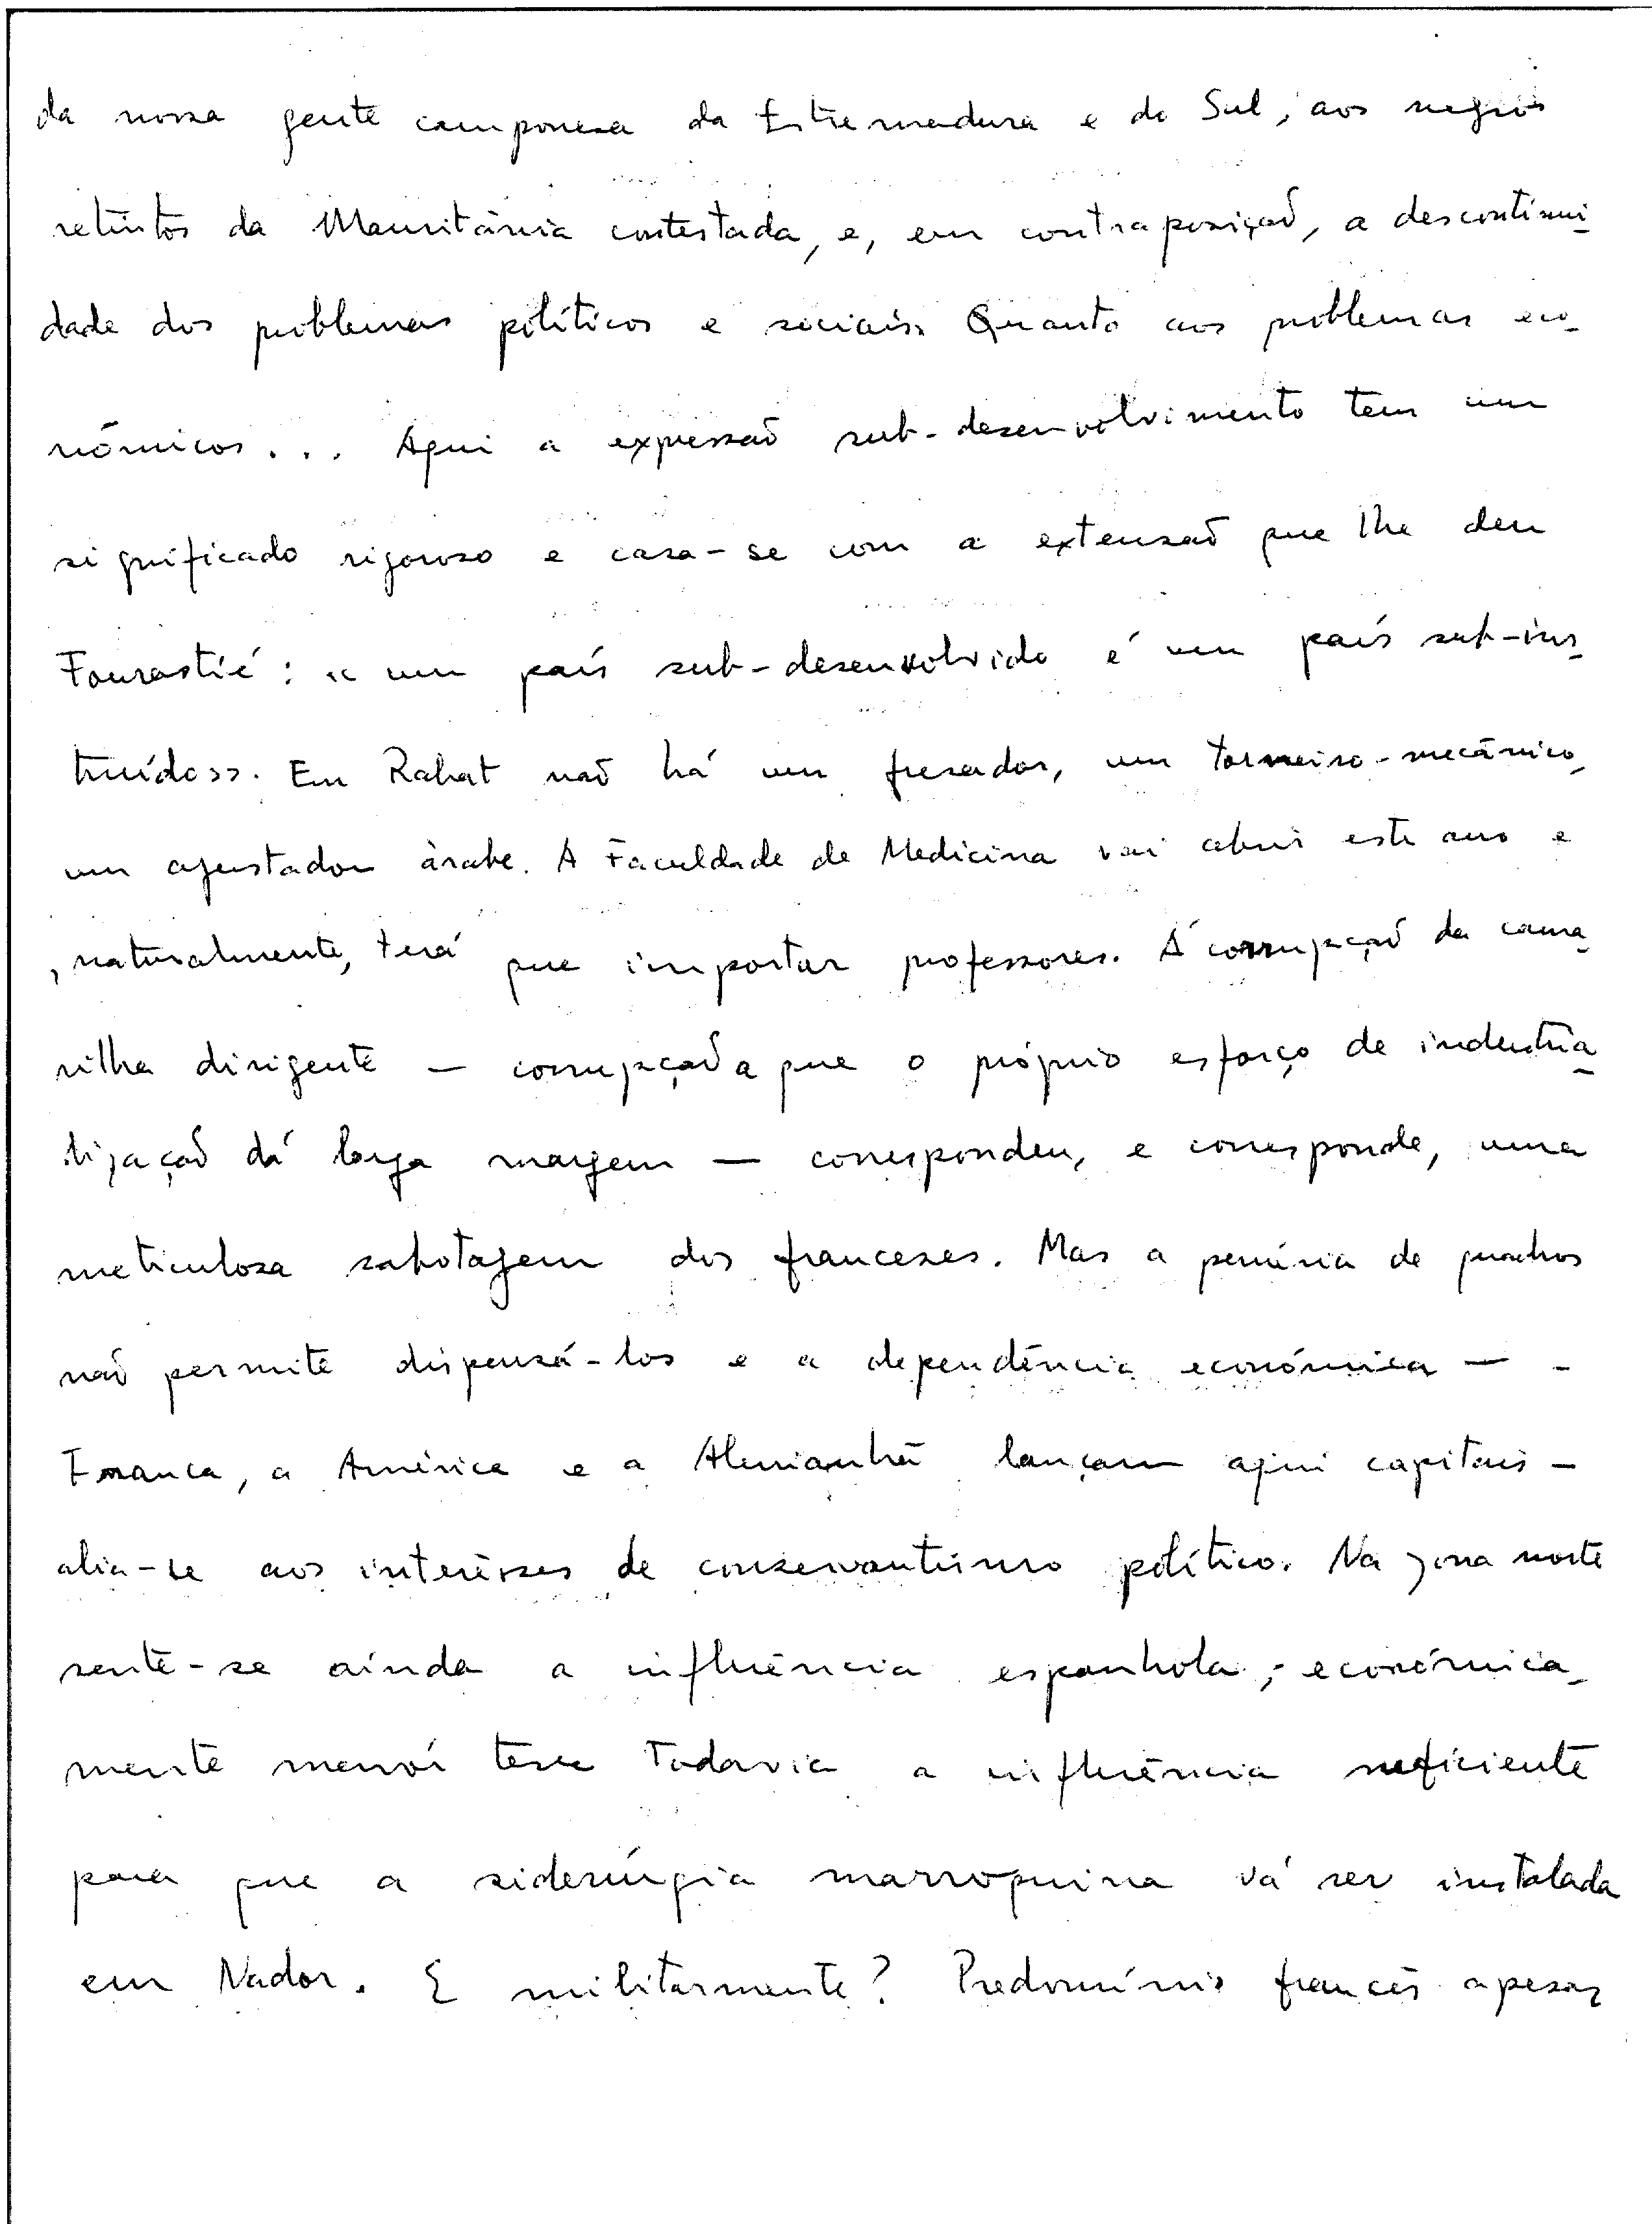 da nossa gente camponesa da Estremadura e do Sul, aos negros
retintos da Mauritânia contestada, e, em contraposição, a descontinui-
dade dos problemas políticos e sociais. Quanto aos problemas eco-
nómicos... Aqui a expressão sub-desenvolvimento tem um
significado rigoroso e casa-se com a extensão que lhe deu
Fourastié: «um país sub-desenvolvido é um país sub-ins-
truído». Em Rabat não há um fresador, um torneiro-mecânico,
um ajustador árabe. A Faculdade de Medicina vai abrir este ano e
, naturalmente, terá que importar professores. À corrupção da cama-
rilha dirigente — corrupção a que o próprio esforço de industria-
lização dá larga margem — correspondeu, e corresponde, uma
meticulosa sabotagem dos franceses. Mas a penúria de quadros
não permite dispensá-los e a dependência económica — -
França, a América e a Alemanha lançam aqui capitais —
alia-se aos interêsses de conservantismo político. Na zona norte
sente-se ainda a influência espanhola; económica-
mente menor teve todavia a influência suficiente
para que a siderúrgia marroquina vá ser instalada
em Nador. E militarmente? Predomínio francês apesar